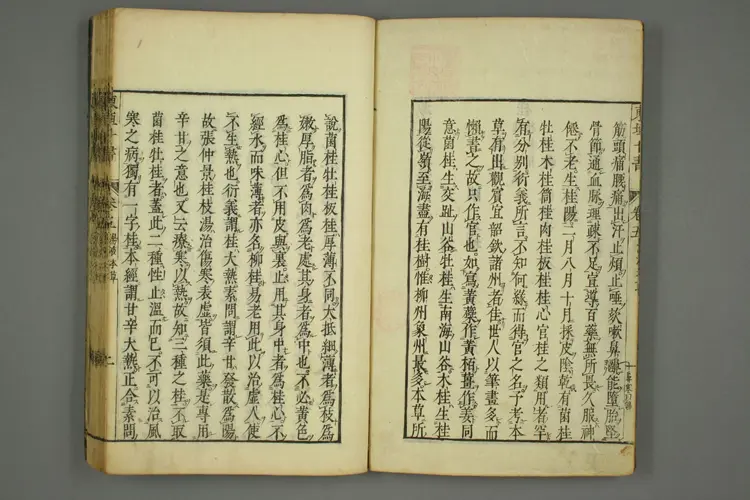 筋頭痛腰痛出汗止煩止唾欬嗽鼻齆能墮胎堅
骨節通血脉理疎不足宣導百藥無所畏久服神
仙不老生桂陽二月八月十月採皮陰乾有菌桂
牡桂木桂筒桂肉桂板桂桂心官桂之類用者罕
有分別衍義所言不知何緣而得官之名予考本
草有出觀賓宜韶欽諸州者佳世人以筆畫多而
懶書之故只作官也如寫黃蘗作黃栢薑作姜同
意菌桂生交趾山谷牡桂生南海山谷木桂生桂
陽從嶺至海盡有桂樹惟柳州象州最多本草所
說菌桂牡桂板桂厚薄不同大抵細薄者爲枝爲
嫩厚脂者爲肉爲老處其身者爲中也不必黃色
爲桂心但不用皮與裏止用其身中者爲桂心不
經水而味薄者亦名柳桂易老用此以治虛人使
不生熱也衍義謂桂大熱素問謂辛甘發散爲陽
故張仲景桂枝湯治傷寒表虛皆須此藥是專用
辛甘之意也又云療寒以熱故知三種之桂不取
菌桂牡桂者蓋此二種性止溫而已不可以治風
寒之病獨有一字桂本經謂甘辛大熱正合素問